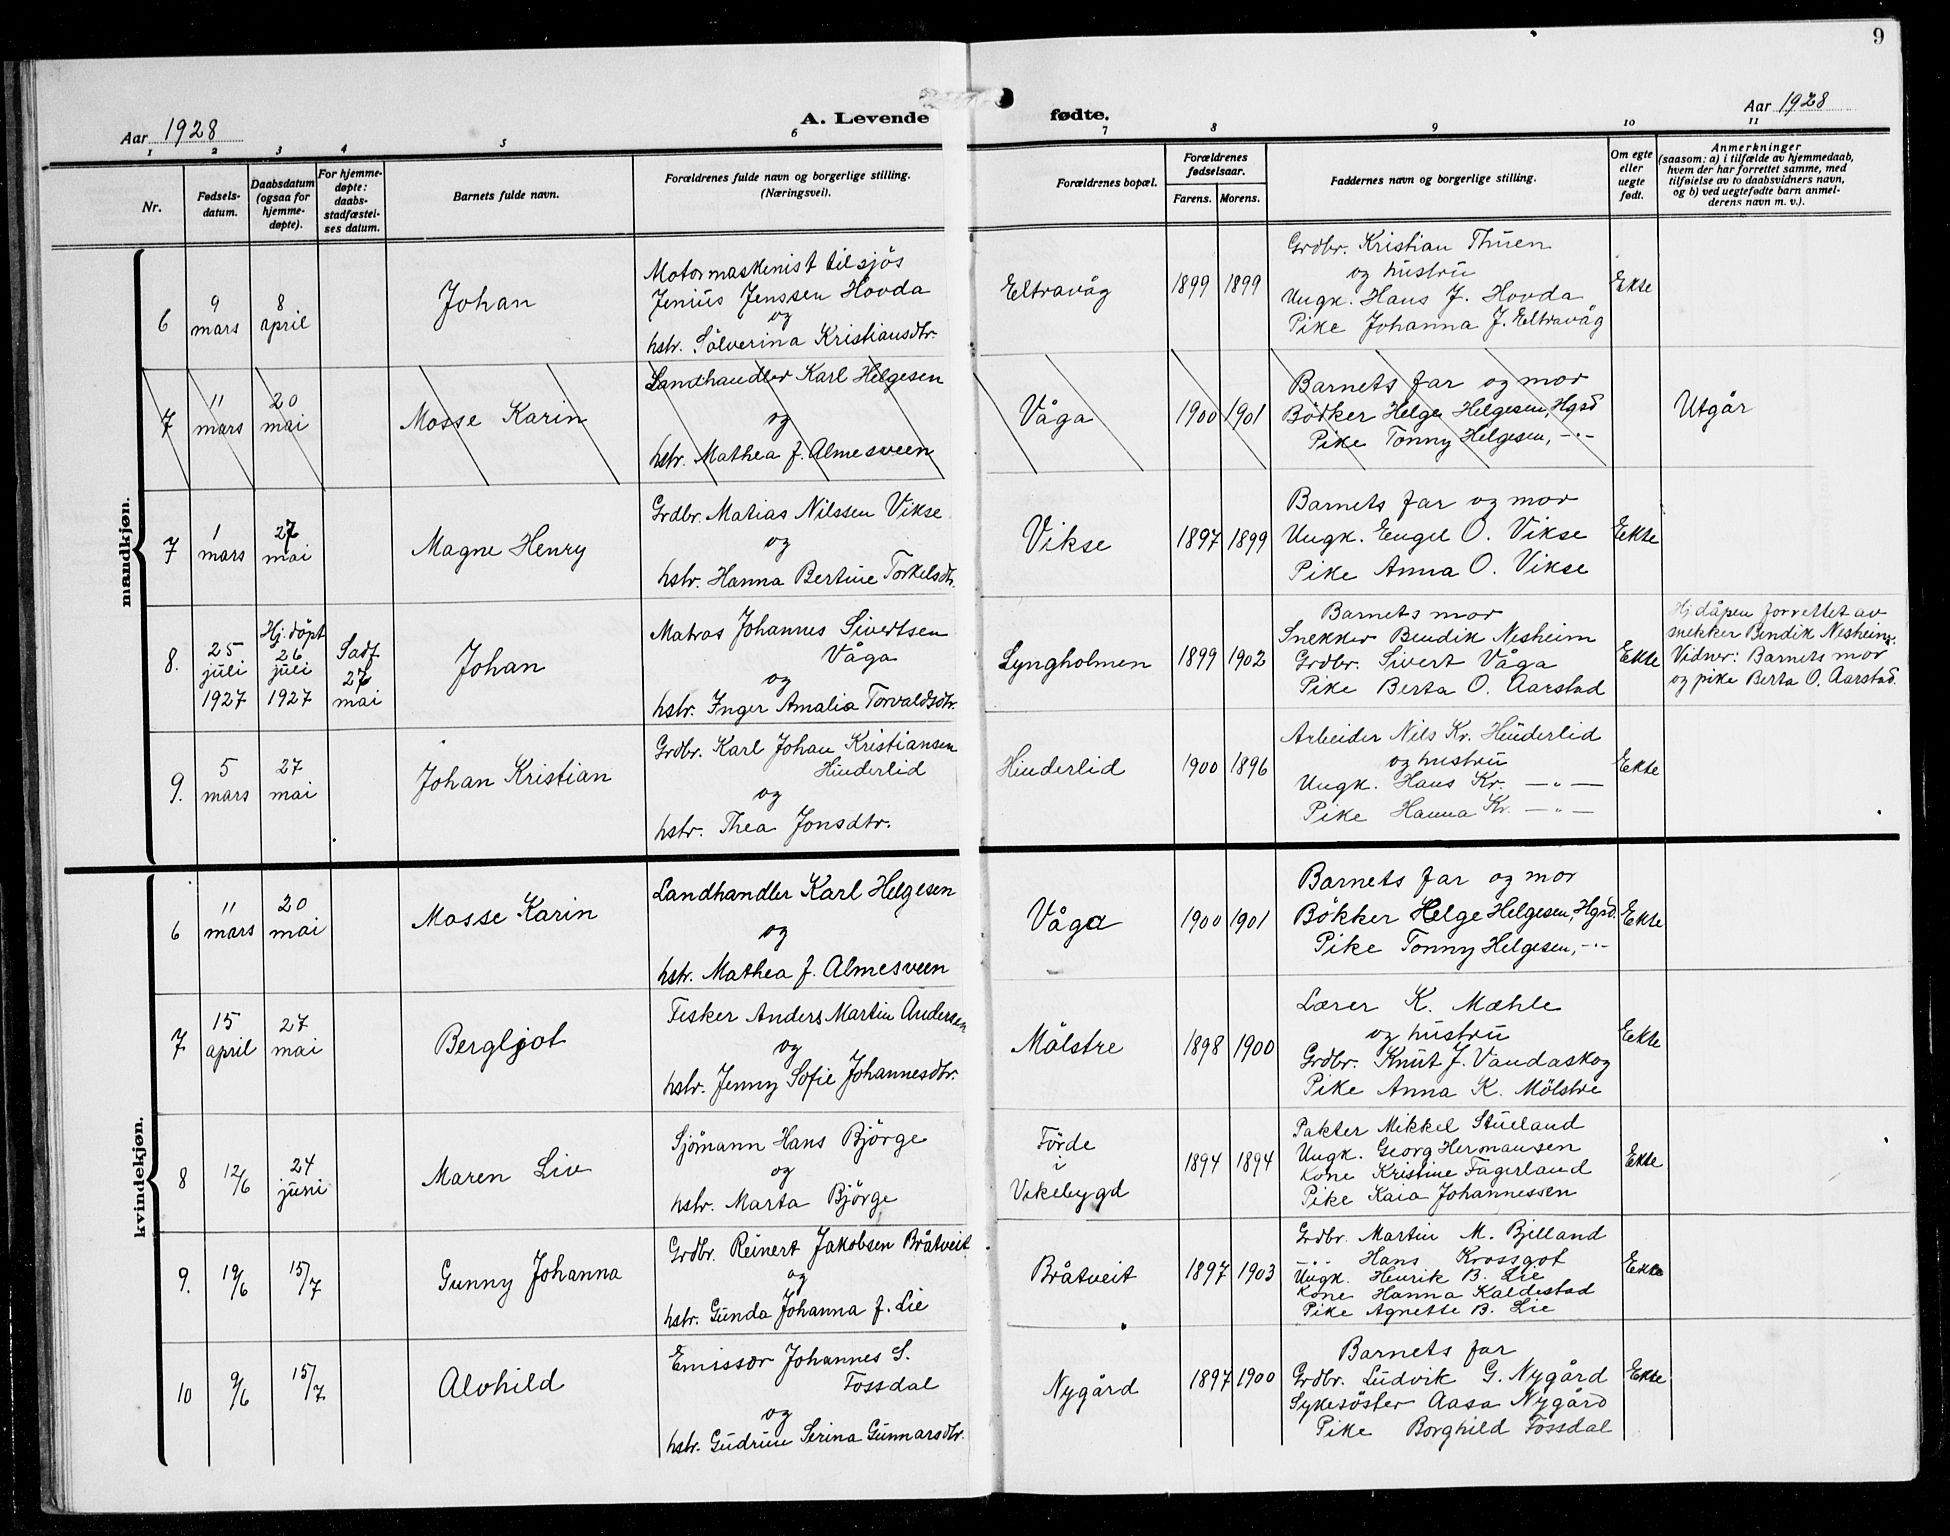 9
Aar 1928
A. Levende
fødte.
Aar 1928
1 2 3 4 5 6 7 8 9 10 11
Nr.
Fødsels-
datum.
Daabsdatum
(ogsaa for
hjemme-
døpte).
For hjemme-
døpte:
daabs-
stadfæstel-
ses datum.
Barnets fulde navn.
Forældrenes fulde navn og borgerlige stilling.
(Næringsvei).
Forældrenes bopæl.
Forældrenes
fødselsaar.
Farens. Morens.
Faddernes navn og borgerlige stilling.
Om egte
eller
uegte
født.
Anmerkninger
(saasom: a) i tilfælde av hjemmedaab,
hvem der har forrettet samme, med
tilføielse av to daabsvidners navn,
og b) ved uegtefødte barn anmel-
derens navn m. v.).
mandkjøn.
6
9
mars
8
april
Johan
Motormaskinist til sjøs
Jenius Jenssen Hovda
og
hstr. Sölverina Kristiansdtr.
Eltravåg
1899 1899
Grdbr. Kristian Thuen
og hustru
Ungk. Hans J. Hovda
Pike Johanna J. Eltravåg
Ekte
7
11
mars
20
mai
Mosse Karin
Landhandler Karl Helgesen
og
hstr. Mathea f. Almesveen
Våga
1900 1901
Barnets far og mor
Bödker Helge Helgesen, Hgsd
Pike Tonny Helgesen, -"-
Utgår
7
1
mars
27
mai
Magne Henry
Grdbr. Matias Nilssen Vikse
og
hstr. Hanna Bertine Torkelsdtr.
Vikse
1897 1899
Barnets far og mor
Ungk. Engel O. Vikse
Pike Anna O. Vikse
Ekte
8.
25
juli
1927
Hj. döpt
26
juli
1927
Sadf
27
mai
Johan
Matros Johannes Sivertsen
Våga
og
hstr. Inger Amalia Torvaldsdtr.
Lyngholmen
1899 1902
Barnets mor
Snekker Bendik Nesheim
Grdbr. Sivert Våga
Pike Berta O. Aarstad
Ekte
Hj dåpen forrettet av
snekker Bendik Nesheim.
Vidner: Barnets mor
og pike Berta O. Aarstad.
9.
5
mars
27
mai
Johan Kristian
Grdbr. Karl Johan Kristiansen
Hinderlid
og
hstr. Thea Jonsdtr.
Hinderlid
1900 1896
Arbeider Nils Kr. Hinderlid
og hustru
Ungk. Hans Kr. — " —
Pike Hanna Kr. — " —
Ekte
kvindekjøn.
6
11
mars
20
mai
Mosse Karin
Landhandler Karl Helgesen
og
hstr. Mathea f. Almesveen
Våga
1900 1901
Barnets far og mor
Bökker Helge Helgesen, Hgsd.
Pike Tonny Helgesen, -"-
Ekte
7
15
april
27
mai
Bergljot
Fisker Anders Martin Andersen
og
hstr. Jenny Sofie Johannesdtr.
Målstre
1898 1900
Lærer K. Mæhle
og hustru
Grdbr. Knut J. Vandaskog
Pike Anna K. Mölstre
Ekte
8
12/6
24
juni
Maren Liv
Sjömann Hans Björge
og
hstr. Marta Björge
Förde
i
Vikebygd
1894 1894
Pakter Mikkel Stueland
Ungk. Georg Hermansen
Kone Kristine Fagerland
Pike Kaia Johannessen
Ekte
9.
19/6
15/7
Gunny Johanna
Grdbr. Reinert Jakobsen Bråtveit
og
hstr. Gunda Johanna f. Lie
Bråtveit
1897 1903
Grdbr. Martin M. Bjelland
-"- Hans Krossgot
Ungk. Henrik B. Lie
Kone Hanna Kaldestad
Pike Agnette B. Lie
Ekte
10
9/6
15/7
Alvhild
Emissær Johannes S.
Fossdal
og
hstr. Gudrun Serina Gunnarsdtr.
Nygård
1897 1900
Barnets far
Grdbr. Ludvik G. Nygård
Sykesöster Aasa Nygård
Pike Borghild Fossdal
Ekte